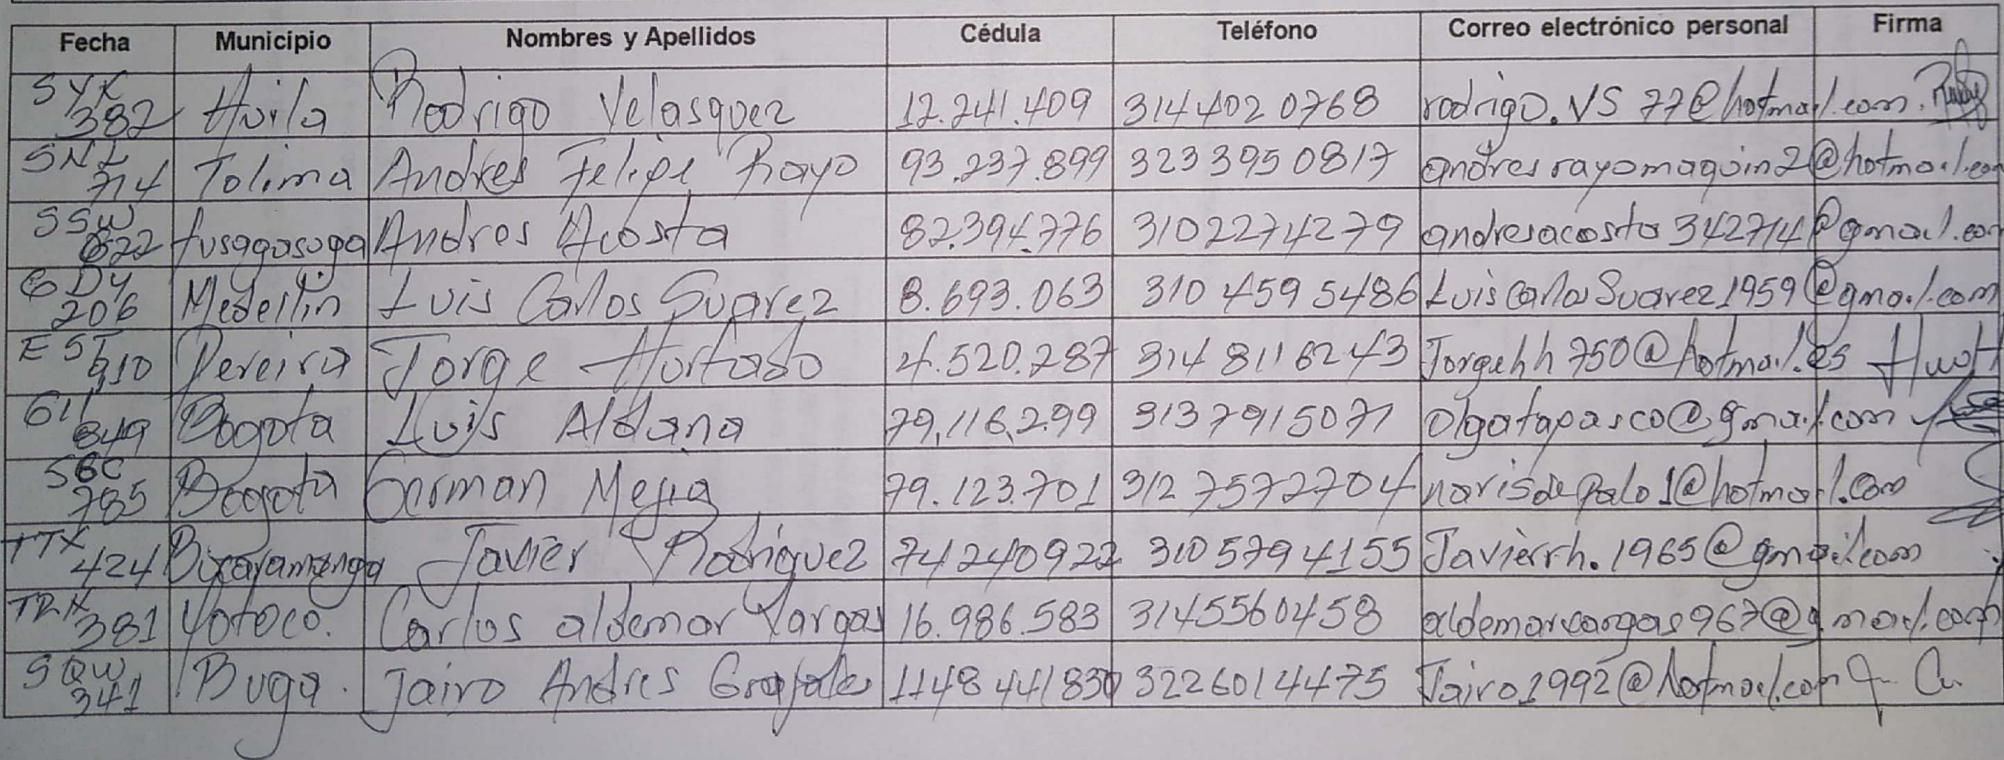 Fecha Municipio Nombres y Apellidos Cédula Teléfono Correo electrónico personal Firma
SYK 382 Huila Rodrigo Velasquez 12.241.409 314 402 0768 rodrigo.VS77@hotmail.com.
SNL 714 Tolima Andres Felipe Rayo 93.237.899 323 395 0817 andresrayomaquin2@hotmail.com
SSW 622 fusagasuga Andres Acosta 82.394.776 3102274279 andresacosta342714@gmail.com
GDY 206 Medellin Luis Carlos Suarez 8.693.063 310 459 5486 LuisCarlosSuarez1959@gmail.com
EST 910 Pereira Jorge Hurtado 4.520.287 314 8116243 Jorgehh750@hotmail.es
849 Bogota Luis Aldana 79,116,299 3137915071 olgatapasco@gmail.com
SBC 785 Bogota German Mejia 79.123.701 312 7572704 narisdepalo1@hotmail.com
TTX 424 Bucaramanga Javier Rodriguez 74240922 3105794155 Javierrh.1965@gmail.com
381 Yotoco. Carlos aldemar Vargas 16.986.583 3145560458 aldemarvargas967@gmail.com
SQW 341 Buga. Jairo Andres Grajales 1148441830 3226014475 Jairo1992@hotmail.com